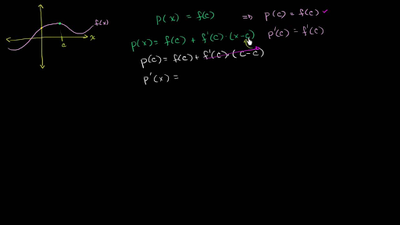 f(x)
x
c
p(x) = f(c) ⇒ p(c) = f(c) ✓
p(x) = f(c) + f'(c)·(x-c) p'(c) = f'(c)
p(c) = f(c) + f'(c)·(c-c)
p'(x) =